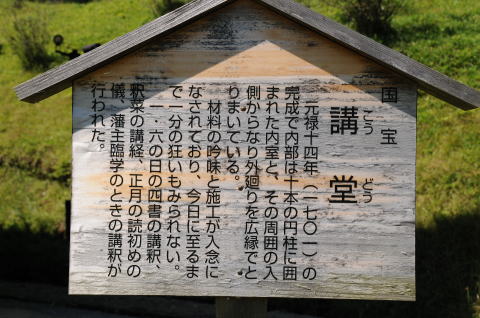 国宝
講堂
こうどう
元禄十四年（一七〇一）の
完成で内部は十本の円柱に囲
まれた内室と、その周囲の入
側からなり外廻りを広縁でと
りまいている。
材料の吟味と施工が入念に
なされており、今日に至るま
で一分の狂いもみられない。
一・六の日の四書の講釈、
釈菜の講経、正月の読初めの
儀、藩主臨学のときの講釈が
行われた。